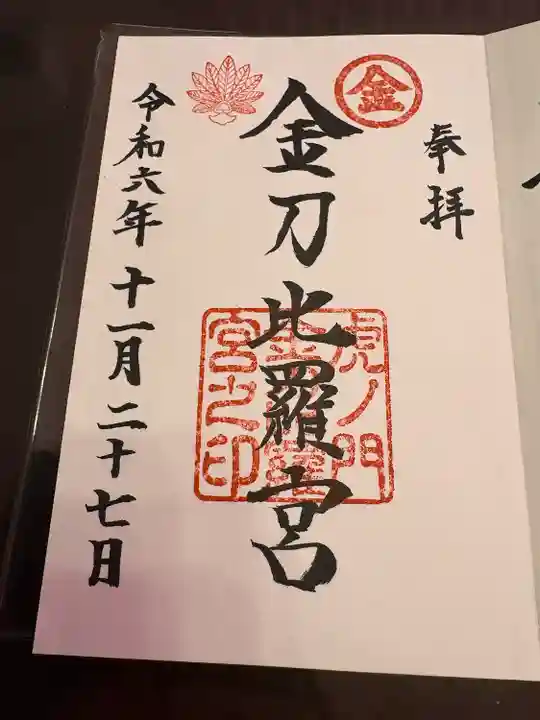 奉拝
金
金刀比羅宮
虎ノ門
宮之印
令和六年十一月二十七日